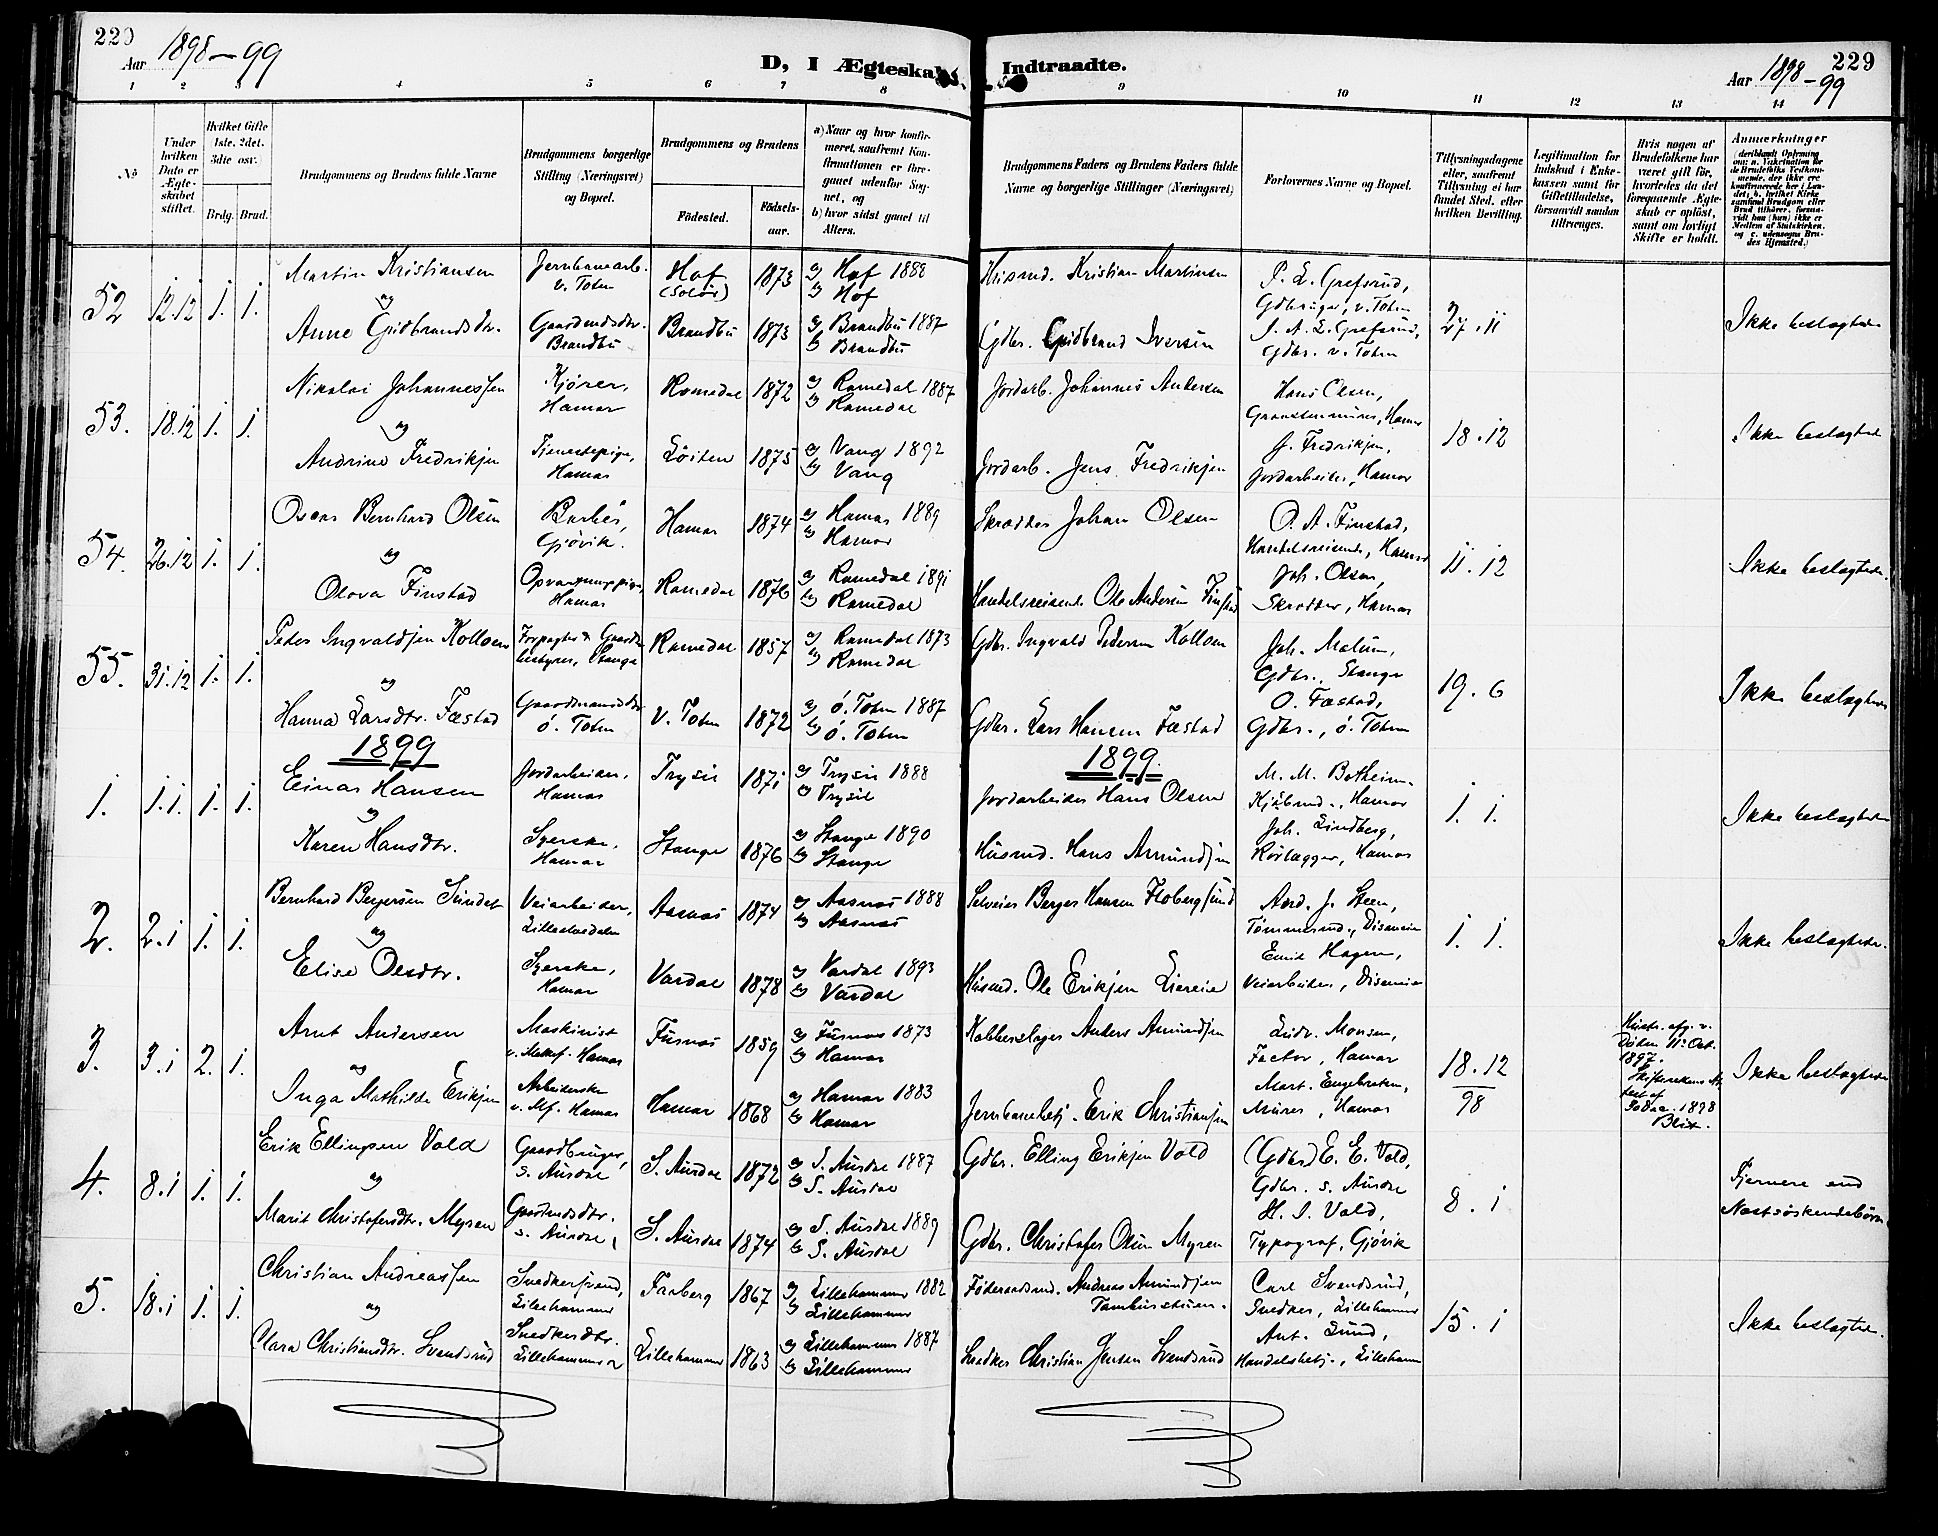 229
Aar 1898-99
D, I Ægteskab Indtraadte.
Aar 1898-99
229
1 2 3 4 5 6 7 8 9 10 11 12 13 14
No
Under hvilken Dato er Ægteskabet stiftet.
Hvilket Gifte 1ste, 2det, 3die osv.
Brdg. Brud.
Brudgommens og Brudens fulde Navne
Brudgommens borgerlige Stilling (Næringsvei) og Bopæl.
Brudgommens og Brudens
Fødested.
Fødselsaar.
a) Naar og hvor konfirmeret, saafremt Konfirmationen er foregaaet udenfor Sognet, og
b) hvor sidst gaaet til Alters.
Brudgommens Faders og Brudens Faders fulde Navne og borgerlige Stillinger (Næringsvei)
Forlovernes Navne og Bopæl.
Tillysningsdagene eller, saafremt Tillysning ei har fundet Sted, efter hvilken Bevilling.
Legitimation for Indskud i Enkekassen samt for Giftetilladelse, forsaavidt saadan tiltrænges.
Hvis nogen af Brudefolkene har været gift før, hvorledes da det foregaaende Ægteskab er opløst, samt om lovligt Skifte er holdt.
Anmærkninger
52 12.12 1. 1.
Martin Kristiansen
og
Anne Gudbrandsdtr.
Jernbanearb. v. Toten
Gaardmdsdtr. Brandbu
Hof (Solør) 1873
Brandbu 1873
a) Hof 1888
b) Hof
a) Brandbu 1887
b) Brandbu
Husmd. Kristian Martinsen
Gdbr. Gudbrand Iversen
P. L. Grefsrud,
Gdbruger, v. Toten
J. A. L. Grefsrud,
Gdbr. v. Toten
27.11
Ikke beslægtede
53. 18.12 1. 1.
Nikolai Johannessen
og
Andrine Fredriksen
Kjører, Hamar
Tjenestepige, Hamar
Romedal 1872
Løiten 1875
a) Romedal 1887
b) Romedal
a) Vang 1892
b) Vang
Jordarb. Johannes Andersen
Jordarb. Jens Fredriksen
Hans Olsen,
Graastensmurer, Hamar
J. Fredriksen,
Jordarbeider, Hamar
18.12
Ikke beslægtede
54. 26.12 1. 1.
Oscar Bernhard Olsen
og
Olova Finstad
Barber, Gjøvik.
Opvartningspige, Hamar
Hamar 1874
Romedal 1876
a) Hamar 1889
b) Hamar
a) Romedal 1891
b) Romedal
Skrædder Johan Olsen
Handelsreisende Ole Andersen Finstad
O. A. Finstad,
Handelsreisende, Hamar
Joh. Olsen,
Skrædder, Hamar
11.12
Ikke beslægtede.
55. 31.12 1. 1.
Peder Ingvaldsen Kolloen
og
Hanna Larsdtr. Fæstad
Forpagter & Gaardbestyrer, Stange
Gaardmandsdtr. Ø. Toten
Romedal 1857
V. Toten 1872
a) Romedal 1873
b) Romedal
a) Ø. Toten 1887
b) Ø. Toten
Gdbr. Ingvald Pedersen Kolloen
Gdbr. Lars Hansen Fæstad
Joh. Melum,
Gdbr., Stange
O. Fæstad,
Gdbr., Ø. Toten
19.6
Ikke beslægtede
1899
1899.
1. 1.1. 1. 1.
Einar Hansen
og
Karen Hansdtr.
Jordarbeider, Hamar
Syerske, Hamar
Trysil 1871
Stange 1876
a) Trysil 1888
b) Trysil
a) Stange 1890
b) Stange
Jordarbeider Hans Olsen
Husmd. Hans Amundsen
M. M. Botheim,
Kjøbmd., Hamar
Joh. Lindberg,
Rørlægger, Hamar
1. 1.
Ikke beslægtede
2. 2.1 1. 1.
Bernhard Bergersen Sundet
og
Elise Olsdtr.
Veiarbeider,
Syerske, Hamar
Aasnæs 1874
Vardal 1878
a) Aasnæs 1888
b) Aasnæs
a) Vardal 1893
b) Vardal
Selveier Berger Hansen Flobergsund
Husmd. Ole Eriksen Liereie
And. J. Steen,
Tømmermd., Diseneie
Emil Hagen,
Veiarbeider, Diseneie
1. 1.
Ikke beslægtede.
3. 3.1 2. 1.
Arnt Andersen
og
Inga Mathilde Eriksen
Maskinist v. Hamar
Arbeiderske v. Mf. Hamar
Furnæs 1859
Hamar 1868
a) Furnæs 1873
b) Hamar
a) Hamar 1883
b) Hamar
Kobberslager Anders Amundsen
Jernbanebetj. Erik Christiansen
Ludv. Monsen,
Factor, Hamar
Mart. Engebretsen,
Murer, Hamar
18.12
98
Hustr. afg. v. Døden 11te Oct. 1897.
Skifterettens Attest af
30 Dec. 1898
Blix.
Ikke beslægtede
4. 8.1 1. 1.
Erik Ellingsen Vold
og
Marit Christofersdtr. Myren
Gaardbruger, S. Aurdal
Gaardmdsdtr. S. Aurdal,
S. Aurdal 1872
S. Aurdal 1874
a) S. Aurdal 1887
b) S. Aurdal
a) S. Aurdal 1889
b) S. Aurdal
Gdbr. Elling Eriksen Vold
Gdbr. Christofer Olsen Myren
(Gdbr) E. E. Vold,
Gdbr. S. Aurdal
H. I. Vold,
Typograf, Gjøvik
8.1
Fjernere end
Næstsøskendebørn
5. 18.1 1. 1.
Christian Andreassen
og
Clara Christiansdtr. Svendsrud
Snedkersvend, Lillehammer
Snedkersdtr. Lillehammer
Faaberg 1867
Lillehammer 1863
a) Lillehammer 1882
b) Lillehammer
a) Lillehammer 1887
b) Lillehammer
Føderaadsmd. Andreas Amundsen
Snedker Christian Jensen Svendsrud
Carl Svendsrud,
Snedker, Lillehammer
Ant. Lund,
Handelsbetj., Lillehammer
15.1
Ikke beslægtede.